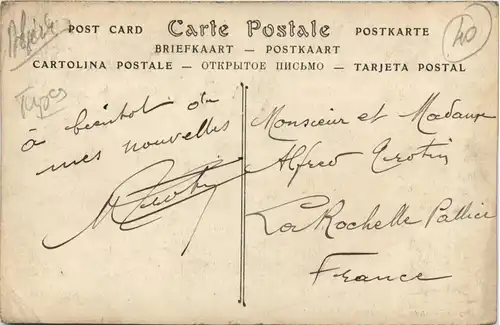 Algérie
Types
40
POST CARD Carte Postale POSTKARTE
BRIEFKAART — POSTKAART
CARTOLINA POSTALE — ОТКРЫТОЕ ПИСЬМО — TARJETA POSTAL
à bientôt de
mes nouvelles
Monsieur et Madame
Alfred
La Rochelle Pallice
France